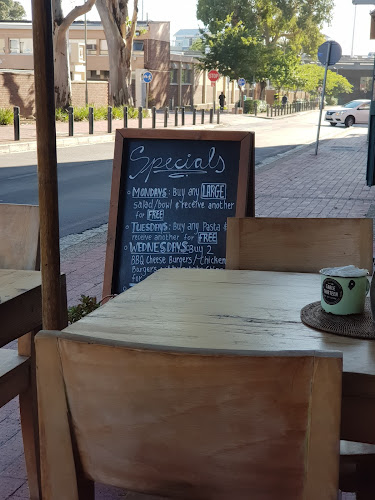 Specials
MONDAYS: Buy any LARGE
salad/bowl & receive another
for FREE
TUESDAYS: Buy any Pasta &
receive another for FREE
WEDNESDAYS: Buy 2
BBQ Cheese Burgers/Chicken
Burgers
for